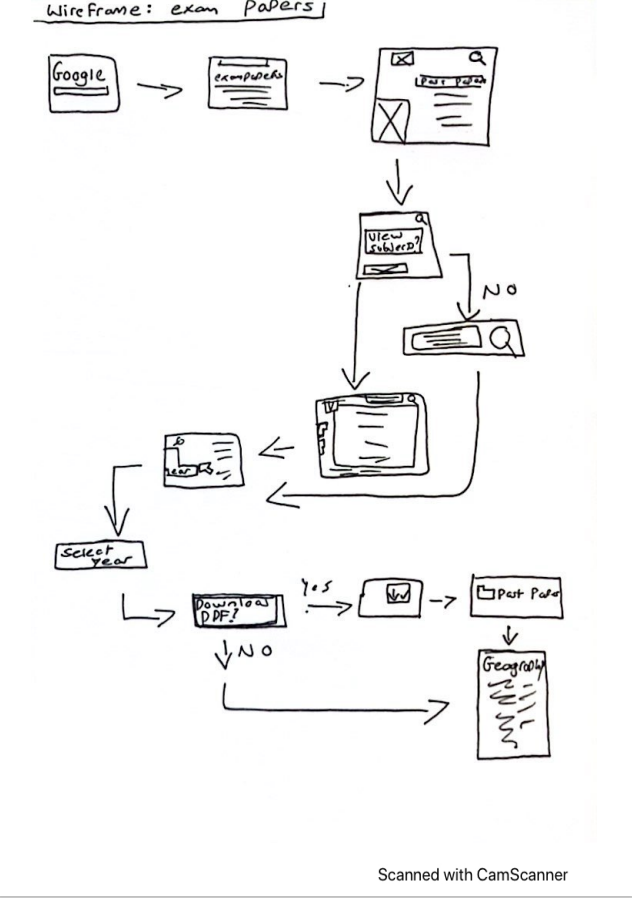 Wireframe: exam Papers
Google
exampapers
Past Papers
View
Subjects?
NO
Year
Select
Year
Download
PDF?
Yes
Past Paper
NO
Geography
Scanned with CamScanner